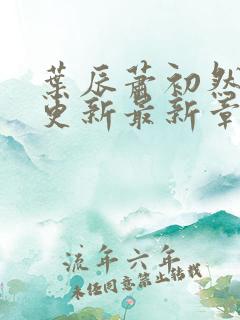 葉辰蕭初然
更新最新章
流年六年
未经同意禁止转载